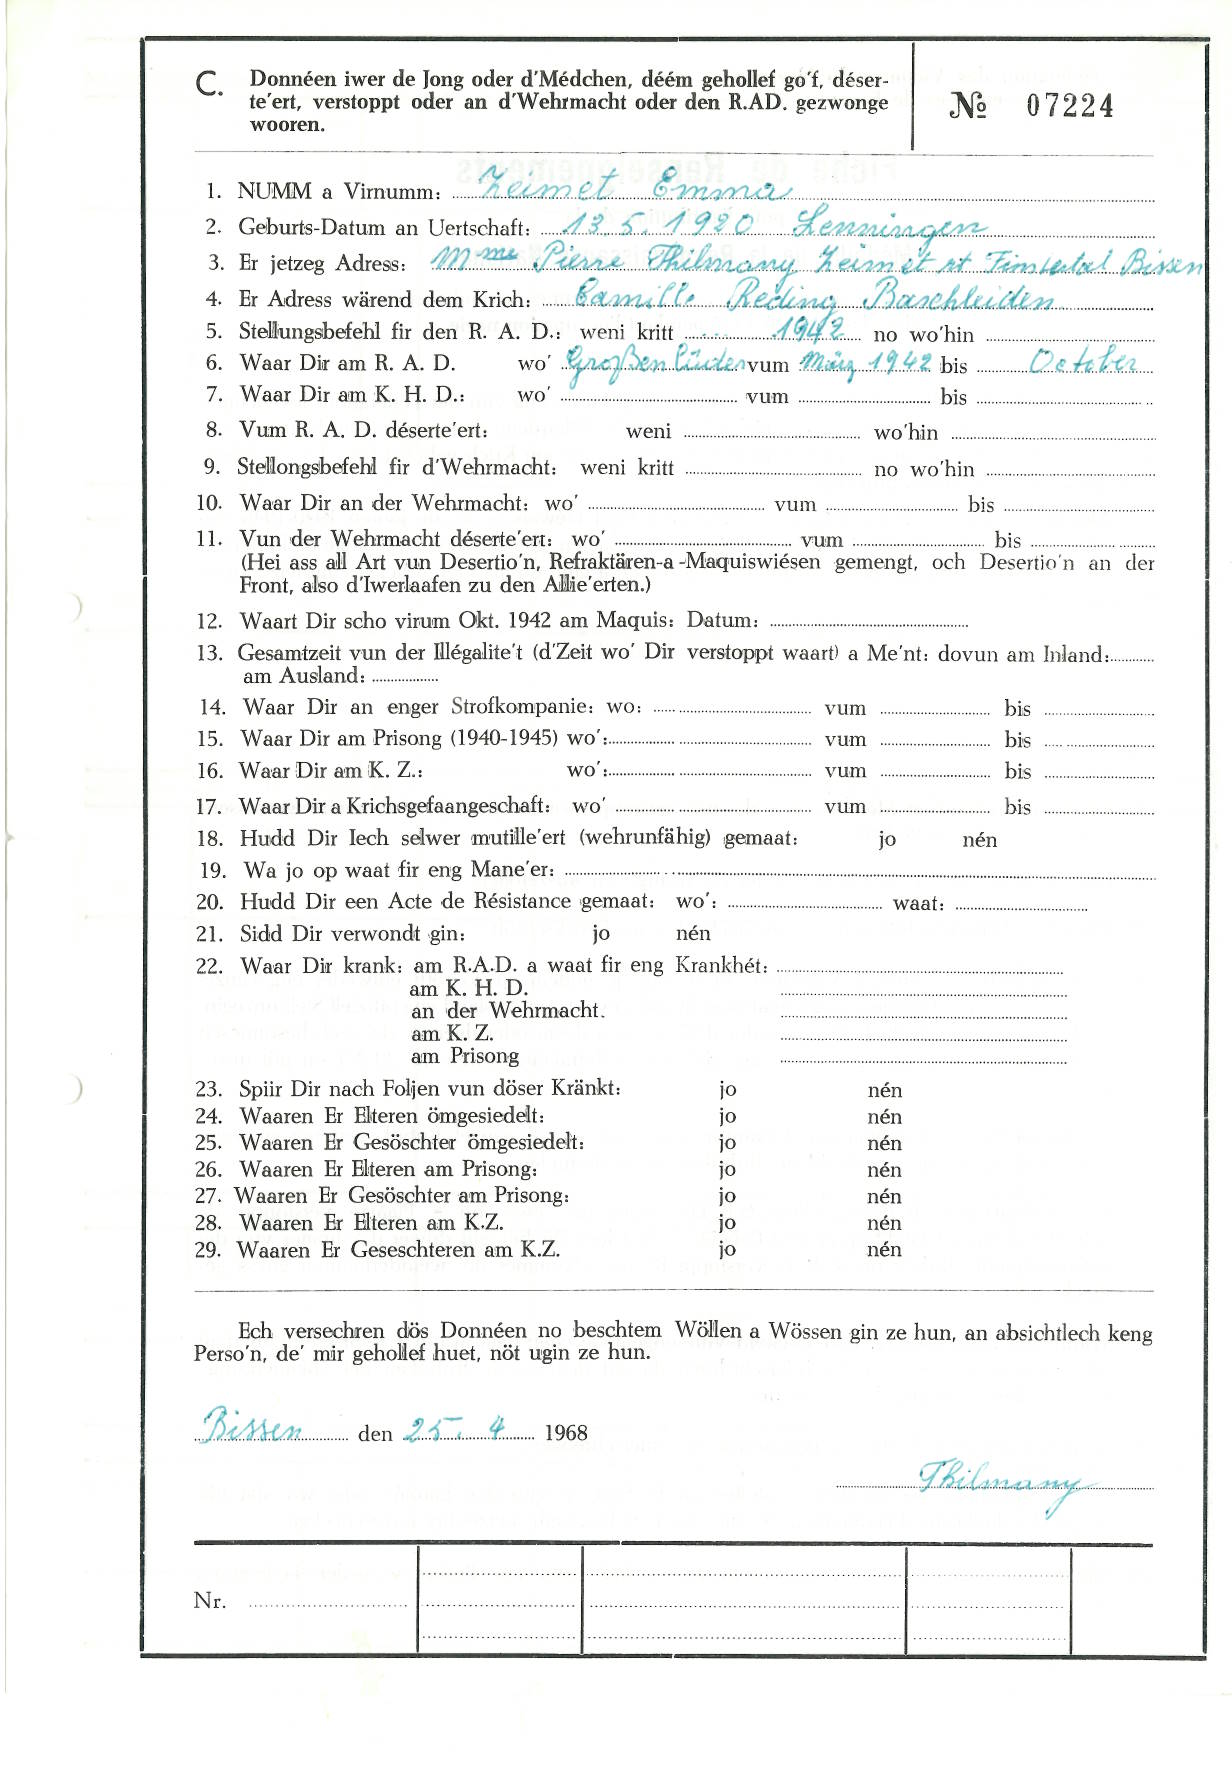 C. Donnéen iwer de Jong oder d'Médchen, déém gehollef go'f, déser-
te'ert, verstoppt oder an d'Wehrmacht oder den R.AD. gezwonge
wooren.
№ 07224
1. NUMM a Virnumm: Zeimet Emma
2. Geburts-Datum an Uertschaft: 13.5.1920 Lenningen
3. Er jetzeg Adress: Mme Pierre Thilmany Zeimet rt Finstertal Bissen
4. Er Adress wärend dem Krich: Camille Reding Baschleiden
5. Stellungsbefehl fir den R. A. D.: weni kritt 1942 no wo'hin
6. Waar Dir am R. A. D. wo' Großenlüder vum März 1942 bis October
7. Waar Dir am K. H. D.: wo' vum bis
8. Vum R. A. D. déserte'ert: weni wo'hin
9. Stellongsbefehl fir d'Wehrmacht: weni kritt no wo'hin
10. Waar Dir an der Wehrmacht: wo' vum bis
11. Vun der Wehrmacht déserte'ert: wo' vum bis
(Hei ass all Art vun Desertio'n, Refraktären-a-Maquiswiésen gemengt, och Desertio'n an der
Front, also d'Iwerlaafen zu den Allie'erten.)
12. Waart Dir scho virum Okt. 1942 am Maquis: Datum:
13. Gesamtzeit vun der Illégalite't (d'Zeit wo' Dir verstoppt waart) a Me'nt: dovun am Inland:
am Ausland:
14. Waar Dir an enger Strofkompanie: wo: vum bis
15. Waar Dir am Prisong (1940-1945) wo': vum bis
16. Waar Dir am K. Z.: wo': vum bis
17. Waar Dir a Krichsgefaangeschaft: wo' vum bis
18. Hudd Dir Iech selwer mutille'ert (wehrunfähig) gemaat: jo nén
19. Wa jo op waat fir eng Mane'er:
20. Hudd Dir een Acte de Résistance gemaat: wo': waat:
21. Sidd Dir verwondt gin: jo nén
22. Waar Dir krank: am R.A.D. a waat fir eng Krankhét:
am K. H. D.
an der Wehrmacht.
am K. Z.
am Prisong
23. Spiir Dir nach Foljen vun döser Kränkt: jo nén
24. Waaren Er Elteren ömgesiedelt: jo nén
25. Waaren Er Gesöschter ömgesiedelt: jo nén
26. Waaren Er Elteren am Prisong: jo nén
27. Waaren Er Gesöschter am Prisong: jo nén
28. Waaren Er Elteren am K.Z. jo nén
29. Waaren Er Geseschteren am K.Z. jo nén
Ech versechren dös Donnéen no beschtem Wöllen a Wössen gin ze hun, an absichtlech keng
Perso'n, de' mir gehollef huet, nöt ugin ze hun.
Bissen den 25. 4 1968
Thilmany
Nr.